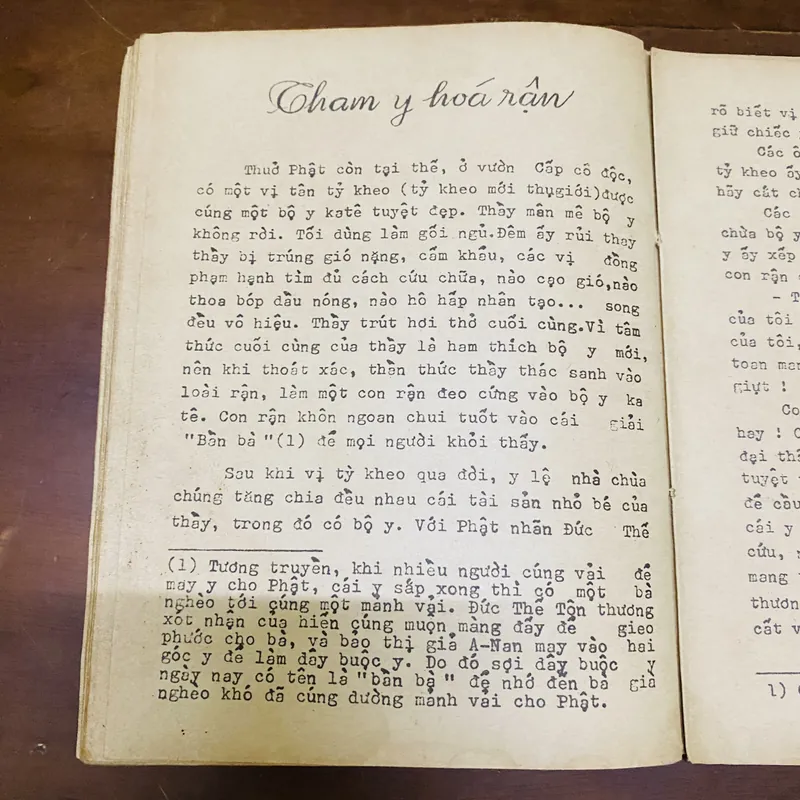 Tham y hoá rận
Thuở Phật còn tại thế, ở vườn Cấp cô độc,
có một vị tân tỷ kheo (tỷ kheo mới thụ giới) được
cúng một bộ y katê tuyệt đẹp. Thầy mân mê bộ y
không rời. Tối dùng làm gối ngủ. Đêm ấy rủi thay
thầy bị trúng gió nặng, cấm khẩu, các vị đồng
phạm hạnh tìm đủ cách cứu chữa, nào cạo gió, nào
thoa bóp dầu nóng, nào hô hấp nhân tạo... song
đều vô hiệu. Thầy trút hơi thở cuối cùng. Vì tâm
thức cuối cùng của thầy là ham thích bộ y mới,
nên khi thoát xác, thần thức thầy thác sanh vào
loài rận, làm một con rận đeo cứng vào bộ y ka
tê. Con rận khôn ngoan chui tuốt vào cái giải
"Bần bà"(1) để mọi người khỏi thấy.
Sau khi vị tỳ kheo qua đời, y lệ nhà chùa
chúng tăng chia đều nhau cái tài sản nhỏ bé của
thầy, trong đó có bộ y. Với Phật nhãn Đức Thế
(1) Tương truyền, khi nhiều người cúng vải để
may y cho Phật, cái y sắp xong thì có một bà
nghèo tới cúng một mảnh vải. Đức Thế Tôn thương
xót nhận của hiến cúng muộn màng đấy để gieo
phước cho bà, và bảo thị giả A-Nan may vào hai
góc y để làm dây buộc y. Do đó sợi dây buộc y
ngày nay có tên là "bần bà" để nhớ đến bà già
nghèo khó đã cúng dường mảnh vải cho Phật.
rõ biết vị
giữ chiếc
Các ô
tỷ kheo ấy
hãy cất ch
Các
chùa bộ y
y ấy xếp
con rận
- T
của tôi
của tôi,
toan man
giựt !
Co
hay ! C
đại th
tuyệt
để cầu
cái y
cứu, n
mang t
thươn
cất v
1) C